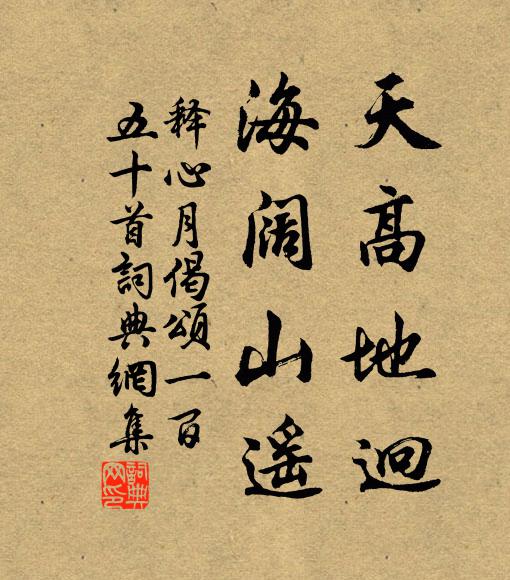 天高地迥
海阔山遥
释心月偈頌一百
五十首詞典網集
詞典
网印